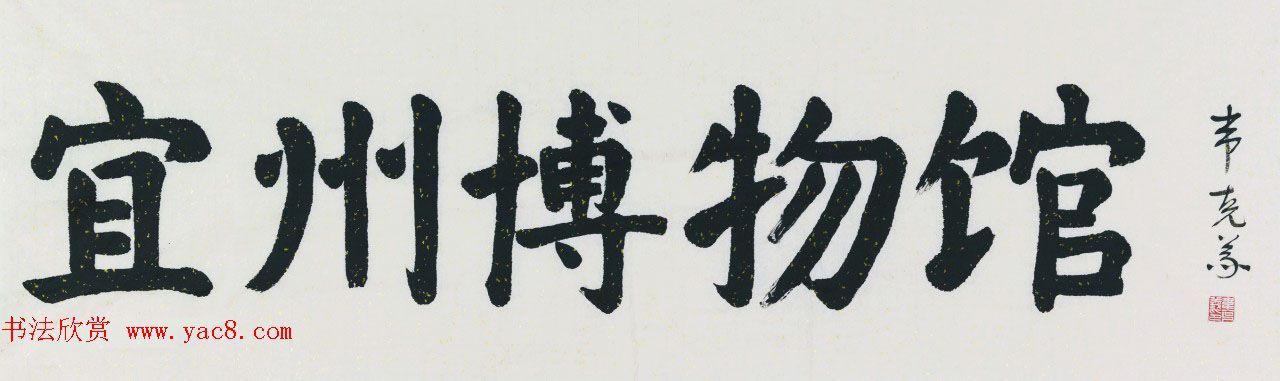 宜州博物馆
韦克义
书法欣赏 www.yac8.com